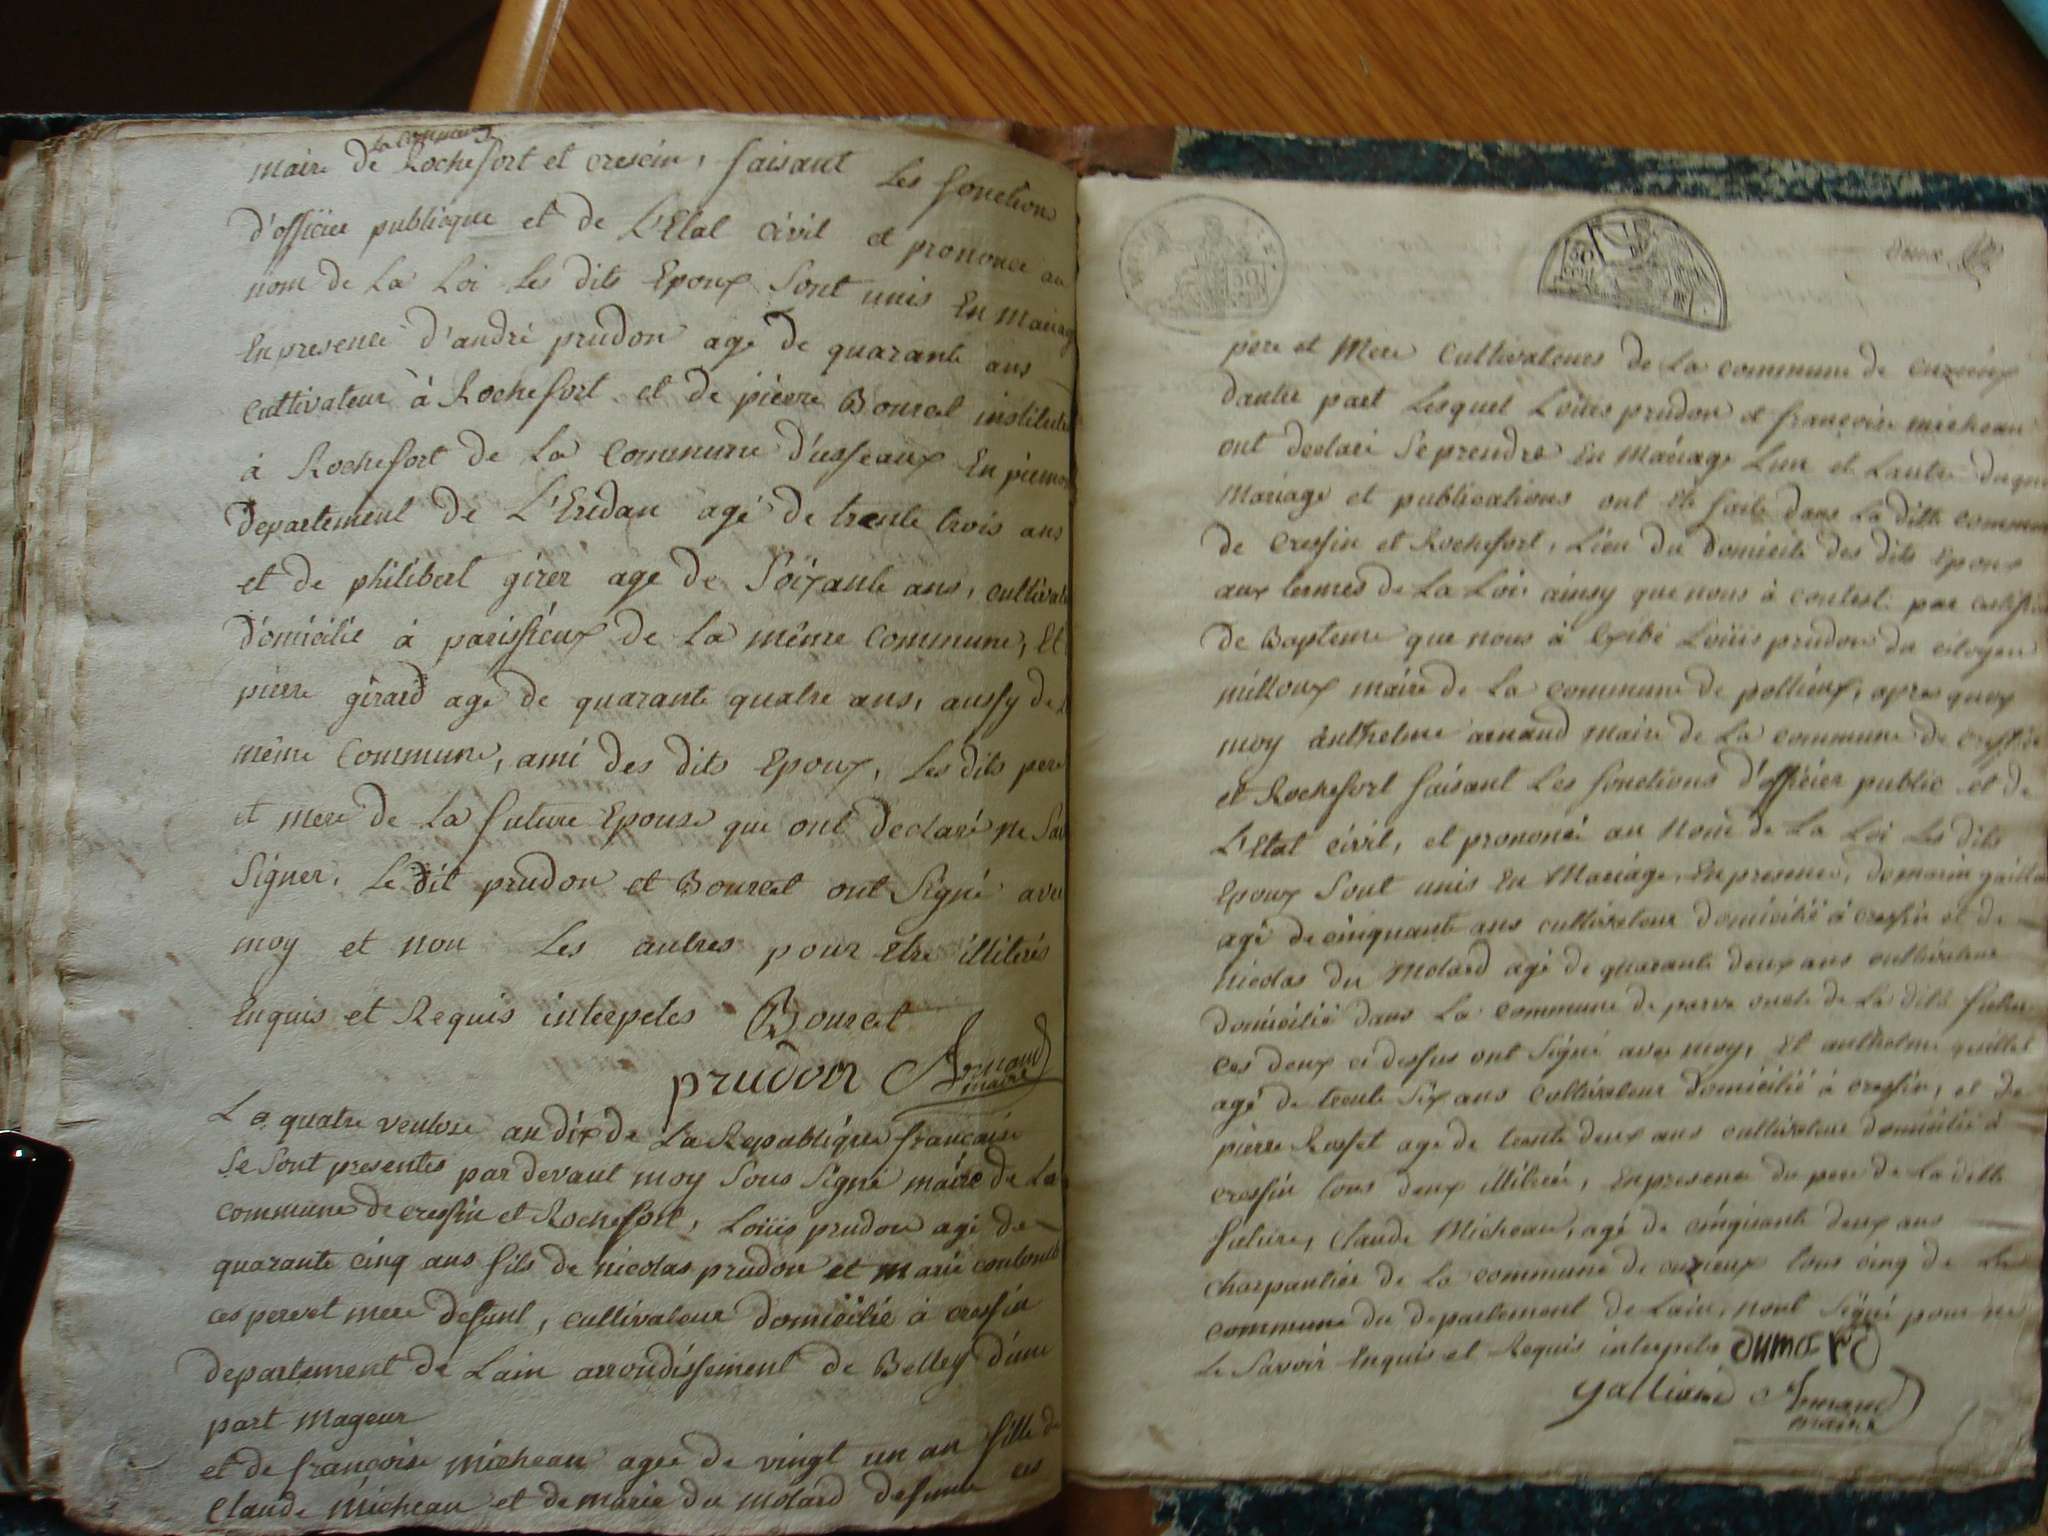 la commune
maire de Rochefort et crescin, faisant Les fonctions
d'officier publicque et de L'Etat civil et prononcé au
nom de La Loi Les dits Epoux Sont unis En Mariage
En presence d'andré prudon agé de quarante ans
cultivateur à Rochefort et de pierre Bourcet
à Rochefort de La Commune d'usseaux En
Departement de L'Eridan agé de trente trois ans
et de philibert girer age de Soixante ans,
Domicilie à parissieux de La même Commune, Et
pierre girard age de quarante quatre ans, aussy de
même Commune, ami des dits Epoux, Les dits pere
et mere de La future Epouse qui ont declaré ne
Signer, Le dit prudon et Bourcet ont Signé avec
moy et non Les autres pour etre illiterés
Enquis et Requis interpeles Bourcet
prudon Arnaud
maire
Le quatre ventose an dix de La Republique francaise
Se Sont presentés par devant moy Sous Signé maire de La
commune de cressin et Rochefort, Loüis prudon agé de
quarante cinq ans fils de nicolas prudon et marie
ces pere et mere defunt, cultivateur domicilié à cressin
departement de Lain arrondissement de Belley d'une
part mageur
et de francoise micheau agee de vingt un an fille de
Claude micheau et de marie du molard defunte ces
deux
pere et Mere Cultivateurs de La commune de
dautre part Lesquel Loüis prudon et francoise micheau
ont declaré Se prendre En Mariage Lun et Lautre
Mariage et publications ont été faite dans La ditte commune
de Cressin et Rochefort, Lieu du domicile des dits Epoux
aux termes de La Loi ainsy que nous à contest par
de Bapteme que nous à Exibé Loüis prudon du citoyen
milloux maire de La commune de pollieux, apres quoy
moy anthelme arnaud maire de La commune de cressin
et Rochefort faisant Les fonctions d'officier public et de
L'Etat civil, et prononcé au Nom de La Loi Les dits
Epoux Sont unis En Mariage, En presence,
agé de cinquante ans cultivateur domicilié à cressin et de
nicolas du Molard agé de quarante deux ans cultivateur
domicilié dans La Commune de parve oncle de La dite future
ces deux ci dessus ont Signé avec moy, Et anthelme quillet
agé de trente Six ans Cultivateur domicilié à cressin, et de
pierre Rosset age de trente deux ans cultivateur domicilié à
cressin tous deux illiteré, En presence du pere de La ditte
future, Claude Micheau, agé de cinquante deux ans
charpantier de La commune de tous cinq de
commune du departement de Lain, nont Signé pour ne
Le Savoir Enquis et Requis interpelés dumolard
Arnaud
maire